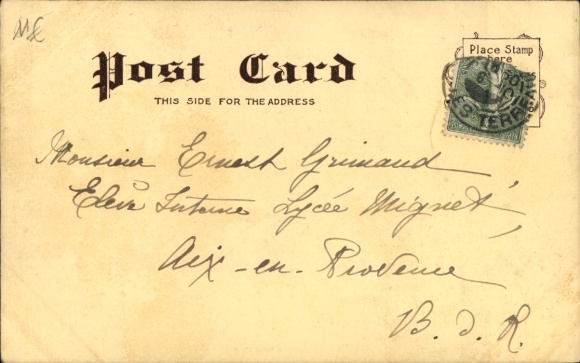 Post Card
Place Stamp
here
THIS SIDE FOR THE ADDRESS
Monsieur Ernest Grimaud
Elève Interne Lycée Mignet
Aix-en-Provence
B. d. R.